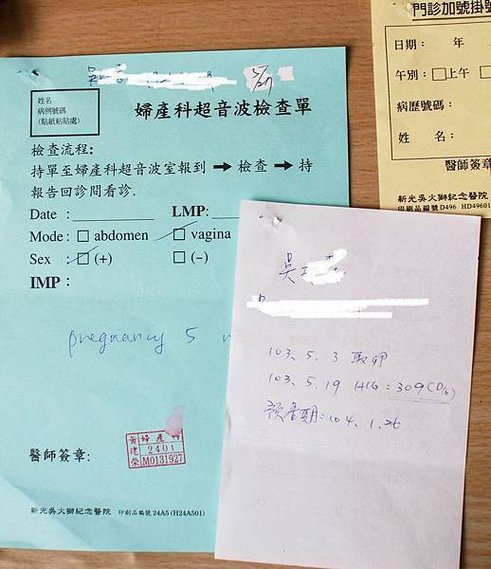 5/27
姓名
病例號碼
(貼紙粘貼處)
婦產科超音波檢查單
檢查流程:
持單至婦產科超音波室報到 ➡ 檢查 ➡ 持
報告回診間看診.
Date :
LMP:
Mode: □ abdomen □ vagina
Sex : □ (+) □ (-)
IMP:
pregnancy 5
醫師簽章:
婦產科
2401
M0131927
新光吳火獅紀念醫院 印刷品編號24A5 (H24A501)
門診加號掛號
日期: 年
午別: □上午 □
病歷號碼:
姓 名:
醫師簽章
新光吳火獅紀念醫院
印刷品編號D496 HD49601
吳
103. 5. 3 取卵
103. 5. 19 HCG: 309 (D16)
預產期: 104. 1. 26